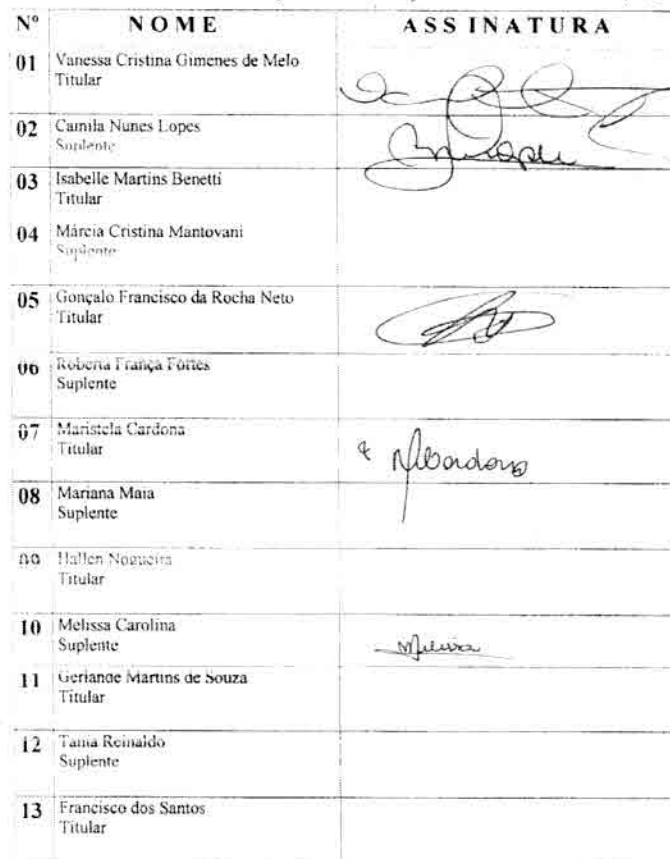 Nº NOME ASSINATURA
01 Vanessa Cristina Gimenes de Melo
Titular
02 Camila Nunes Lopes
Suplente
03 Isabelle Martins Benetti
Titular
04 Márcia Cristina Mantovani
Suplente
05 Gonçalo Francisco da Rocha Neto
Titular
06 Roberta França Fortes
Suplente
07 Maristela Cardona
Titular
08 Mariana Maia
Suplente
09 Hallen Nogueira
Titular
10 Melissa Carolina
Suplente Melissa
11 Gerlande Martins de Souza
Titular
12 Tania Reinaldo
Suplente
13 Francisco dos Santos
Titular